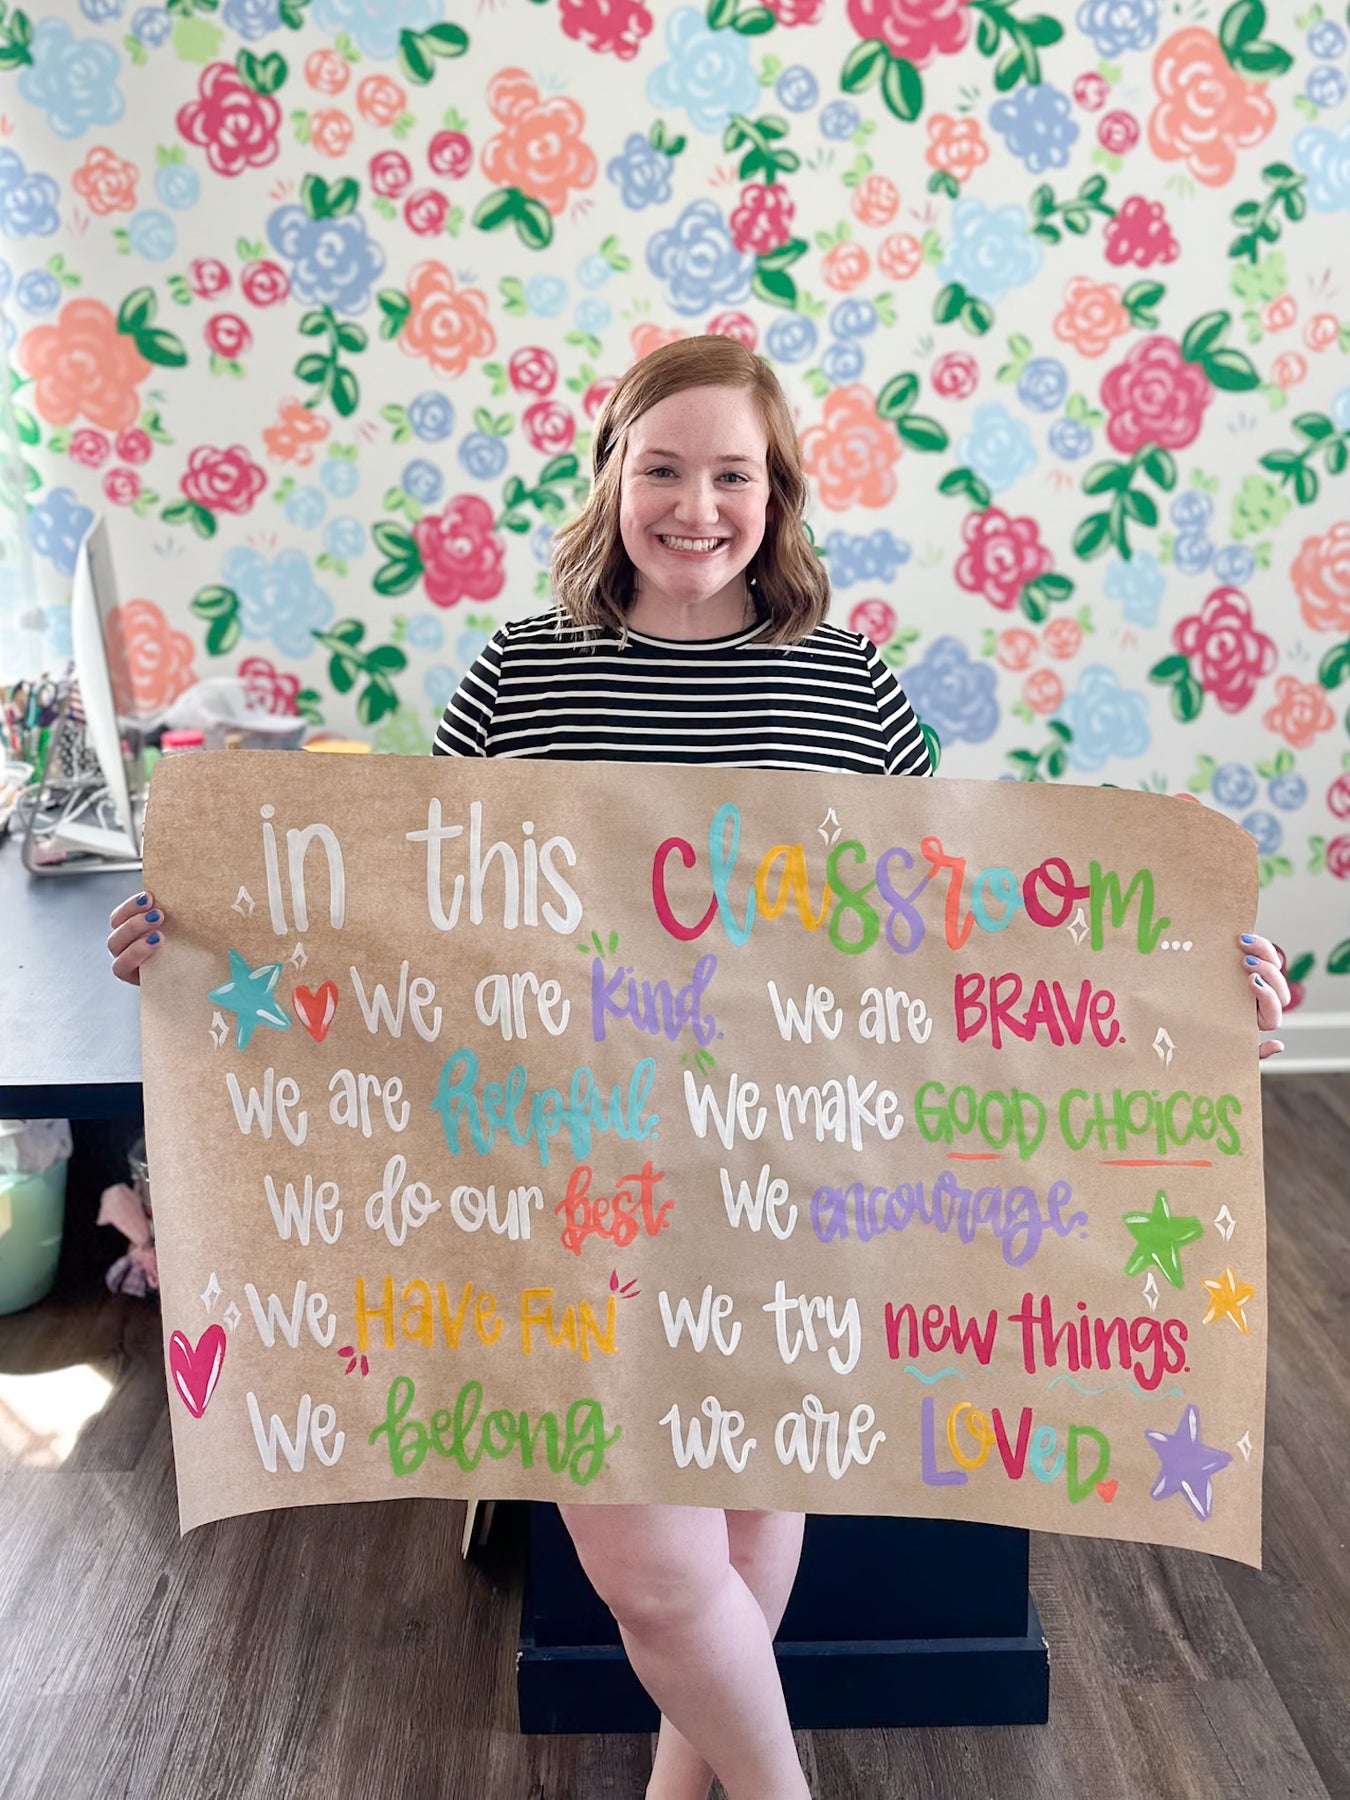 in this classroom...
we are kind. we are BRAVE.
we are helpful. we make GOOD CHOiCes.
we do our best. we encourage.
we HAVe FUN. we try new things.
we belong. we are LOVeD.